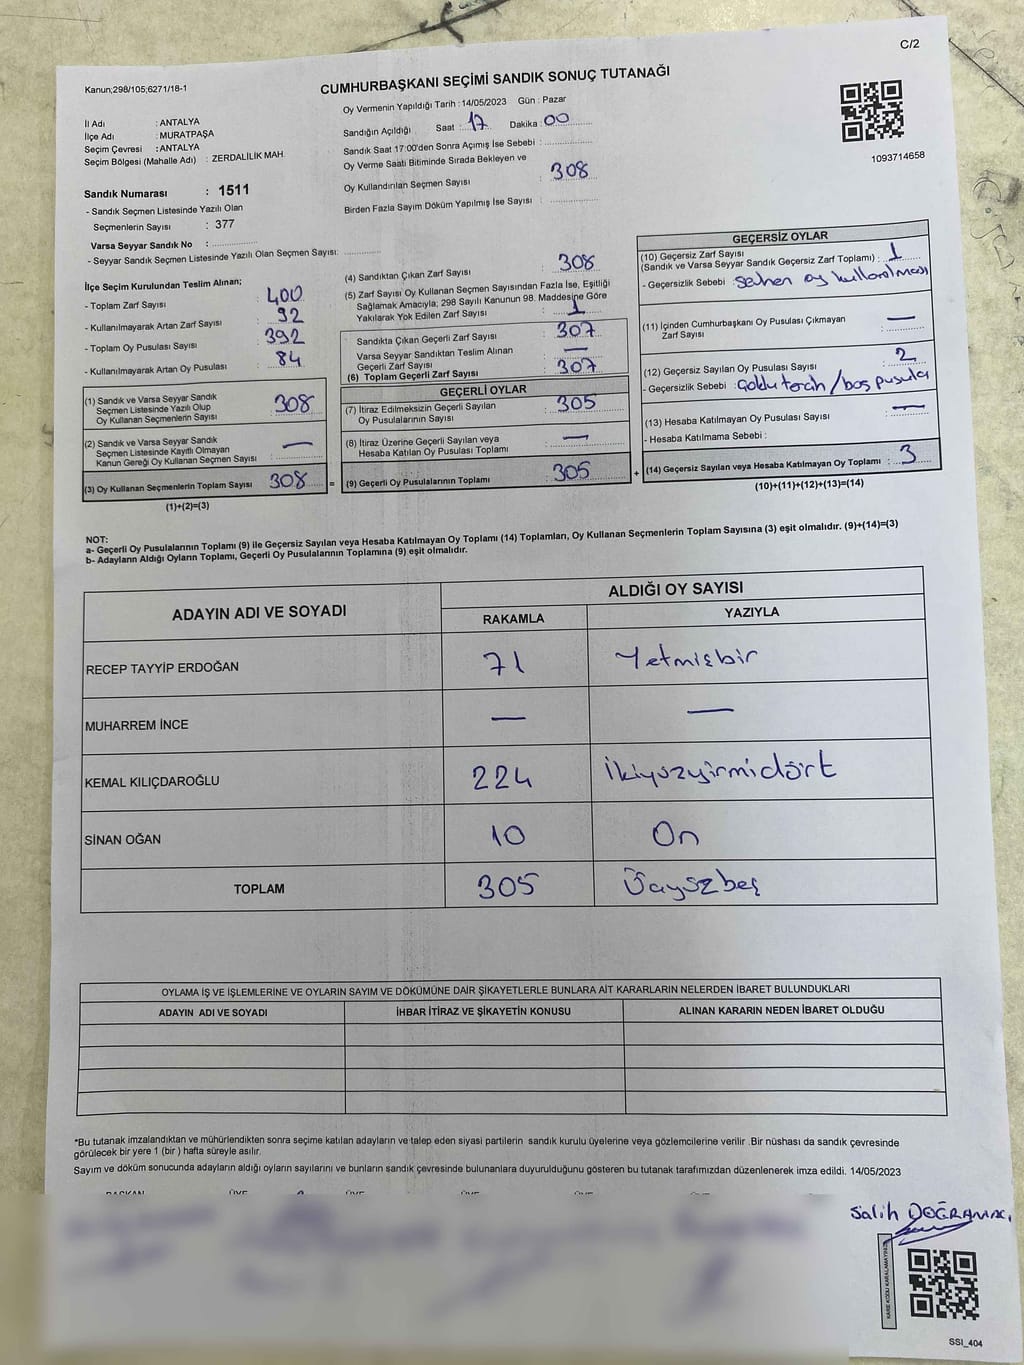 C/2
Kanun;298/105;6271/18-1
CUMHURBAŞKANI SEÇİMİ SANDIK SONUÇ TUTANAĞI
İl Adı : ANTALYA
İlçe Adı : MURATPAŞA
Seçim Çevresi : ANTALYA
Seçim Bölgesi (Mahalle Adı) : ZERDALİLİK MAH.
Sandık Numarası : 1511
- Sandık Seçmen Listesinde Yazılı Olan
Seçmenlerin Sayısı : 377
Varsa Seyyar Sandık No :
- Seyyar Sandık Seçmen Listesinde Yazılı Olan Seçmen Sayısı:
Oy Vermenin Yapıldığı Tarih : 14/05/2023 Gün : Pazar
Sandığın Açıldığı Saat : 17 Dakika : 00
Sandık Saat 17:00'den Sonra Açımış İse Sebebi :
Oy Verme Saati Bitiminde Sırada Bekleyen ve
Oy Kullandırılan Seçmen Sayısı : 308
Birden Fazla Sayım Döküm Yapılmış İse Sayısı :
1093714658
İlçe Seçim Kurulundan Teslim Alınan;
- Toplam Zarf Sayısı : 400
- Kullanılmayarak Artan Zarf Sayısı : 92
- Toplam Oy Pusulası Sayısı : 392
- Kullanılmayarak Artan Oy Pusulası : 84
(1) Sandık ve Varsa Seyyar Sandık
Seçmen Listesinde Yazılı Olup
Oy Kullanan Seçmenlerin Sayısı : 308
(2) Sandık ve Varsa Seyyar Sandık
Seçmen Listesinde Kayıtlı Olmayan
Kanun Gereği Oy Kullanan Seçmen Sayısı : —
(3) Oy Kullanan Seçmenlerin Toplam Sayısı 308 =
(1)+(2)=(3)
(4) Sandıktan Çıkan Zarf Sayısı : 308
(5) Zarf Sayısı Oy Kullanan Seçmen Sayısından Fazla İse, Eşitliği
Sağlamak Amacıyla; 298 Sayılı Kanunun 98. Maddesine Göre
Yakılarak Yok Edilen Zarf Sayısı : 1
Sandıkta Çıkan Geçerli Zarf Sayısı : 307
Varsa Seyyar Sandıktan Teslim Alınan
Geçerli Zarf Sayısı : —
(6) Toplam Geçerli Zarf Sayısı : 307
GEÇERLİ OYLAR
(7) İtiraz Edilmeksizin Geçerli Sayılan
Oy Pusulalarının Sayısı : 305
(8) İtiraz Üzerine Geçerli Sayılan veya
Hesaba Katılan Oy Pusulası Toplamı : —
(9) Geçerli Oy Pusulalarının Toplamı : 305 +
GEÇERSİZ OYLAR
(10) Geçersiz Zarf Sayısı
(Sandık ve Varsa Seyyar Sandık Geçersiz Zarf Toplamı) : 1
- Geçersizlik Sebebi : sehven oy kullanılması
(11) İçinden Cumhurbaşkanı Oy Pusulası Çıkmayan
Zarf Sayısı : —
(12) Geçersiz Sayılan Oy Pusulası Sayısı : 2
- Geçersizlik Sebebi : Çoklu tercih / boş pusula
(13) Hesaba Katılmayan Oy Pusulası Sayısı : —
- Hesaba Katılmama Sebebi :
(14) Geçersiz Sayılan veya Hesaba Katılmayan Oy Toplamı : 3
(10)+(11)+(12)+(13)=(14)
NOT:
a- Geçerli Oy Pusulalarının Toplamı (9) ile Geçersiz Sayılan veya Hesaba Katılmayan Oy Toplamı (14) Toplamları, Oy Kullanan Seçmenlerin Toplam Sayısına (3) eşit olmalıdır. (9)+(14)=(3)
b- Adayların Aldığı Oyların Toplamı, Geçerli Oy Pusulalarının Toplamına (9) eşit olmalıdır.
ADAYIN ADI VE SOYADI ALDIĞI OY SAYISI
RAKAMLA YAZIYLA
RECEP TAYYİP ERDOĞAN 71 Yetmişbir
MUHARREM İNCE — —
KEMAL KILIÇDAROĞLU 224 İkiyüzyirmidört
SİNAN OĞAN 10 On
TOPLAM 305 Üçyüzbeş
OYLAMA İŞ VE İŞLEMLERİNE VE OYLARIN SAYIM VE DÖKÜMÜNE DAİR ŞİKAYETLERLE BUNLARA AİT KARARLARIN NELERDEN İBARET BULUNDUKLARI
ADAYIN ADI VE SOYADI İHBAR İTİRAZ VE ŞİKAYETİN KONUSU ALINAN KARARIN NEDEN İBARET OLDUĞU
*Bu tutanak imzalandıktan ve mühürlendikten sonra seçime katılan adayların ve talep eden siyasi partilerin sandık kurulu üyelerine veya gözlemcilerine verilir .Bir nüshası da sandık çevresinde
görülecek bir yere 1 (bir ) hafta süreyle asılır.
Sayım ve döküm sonucunda adayların aldığı oyların sayılarını ve bunların sandık çevresinde bulunanlara duyurulduğunu gösteren bu tutanak tarafımızdan düzenlenerek imza edildi. 14/05/2023
BAŞKAN ÜYE ÜYE ÜYE ÜYE ÜYE
Salih DOĞRAMACI
KARE KODU KARALAMAYINIZ
SSI_404